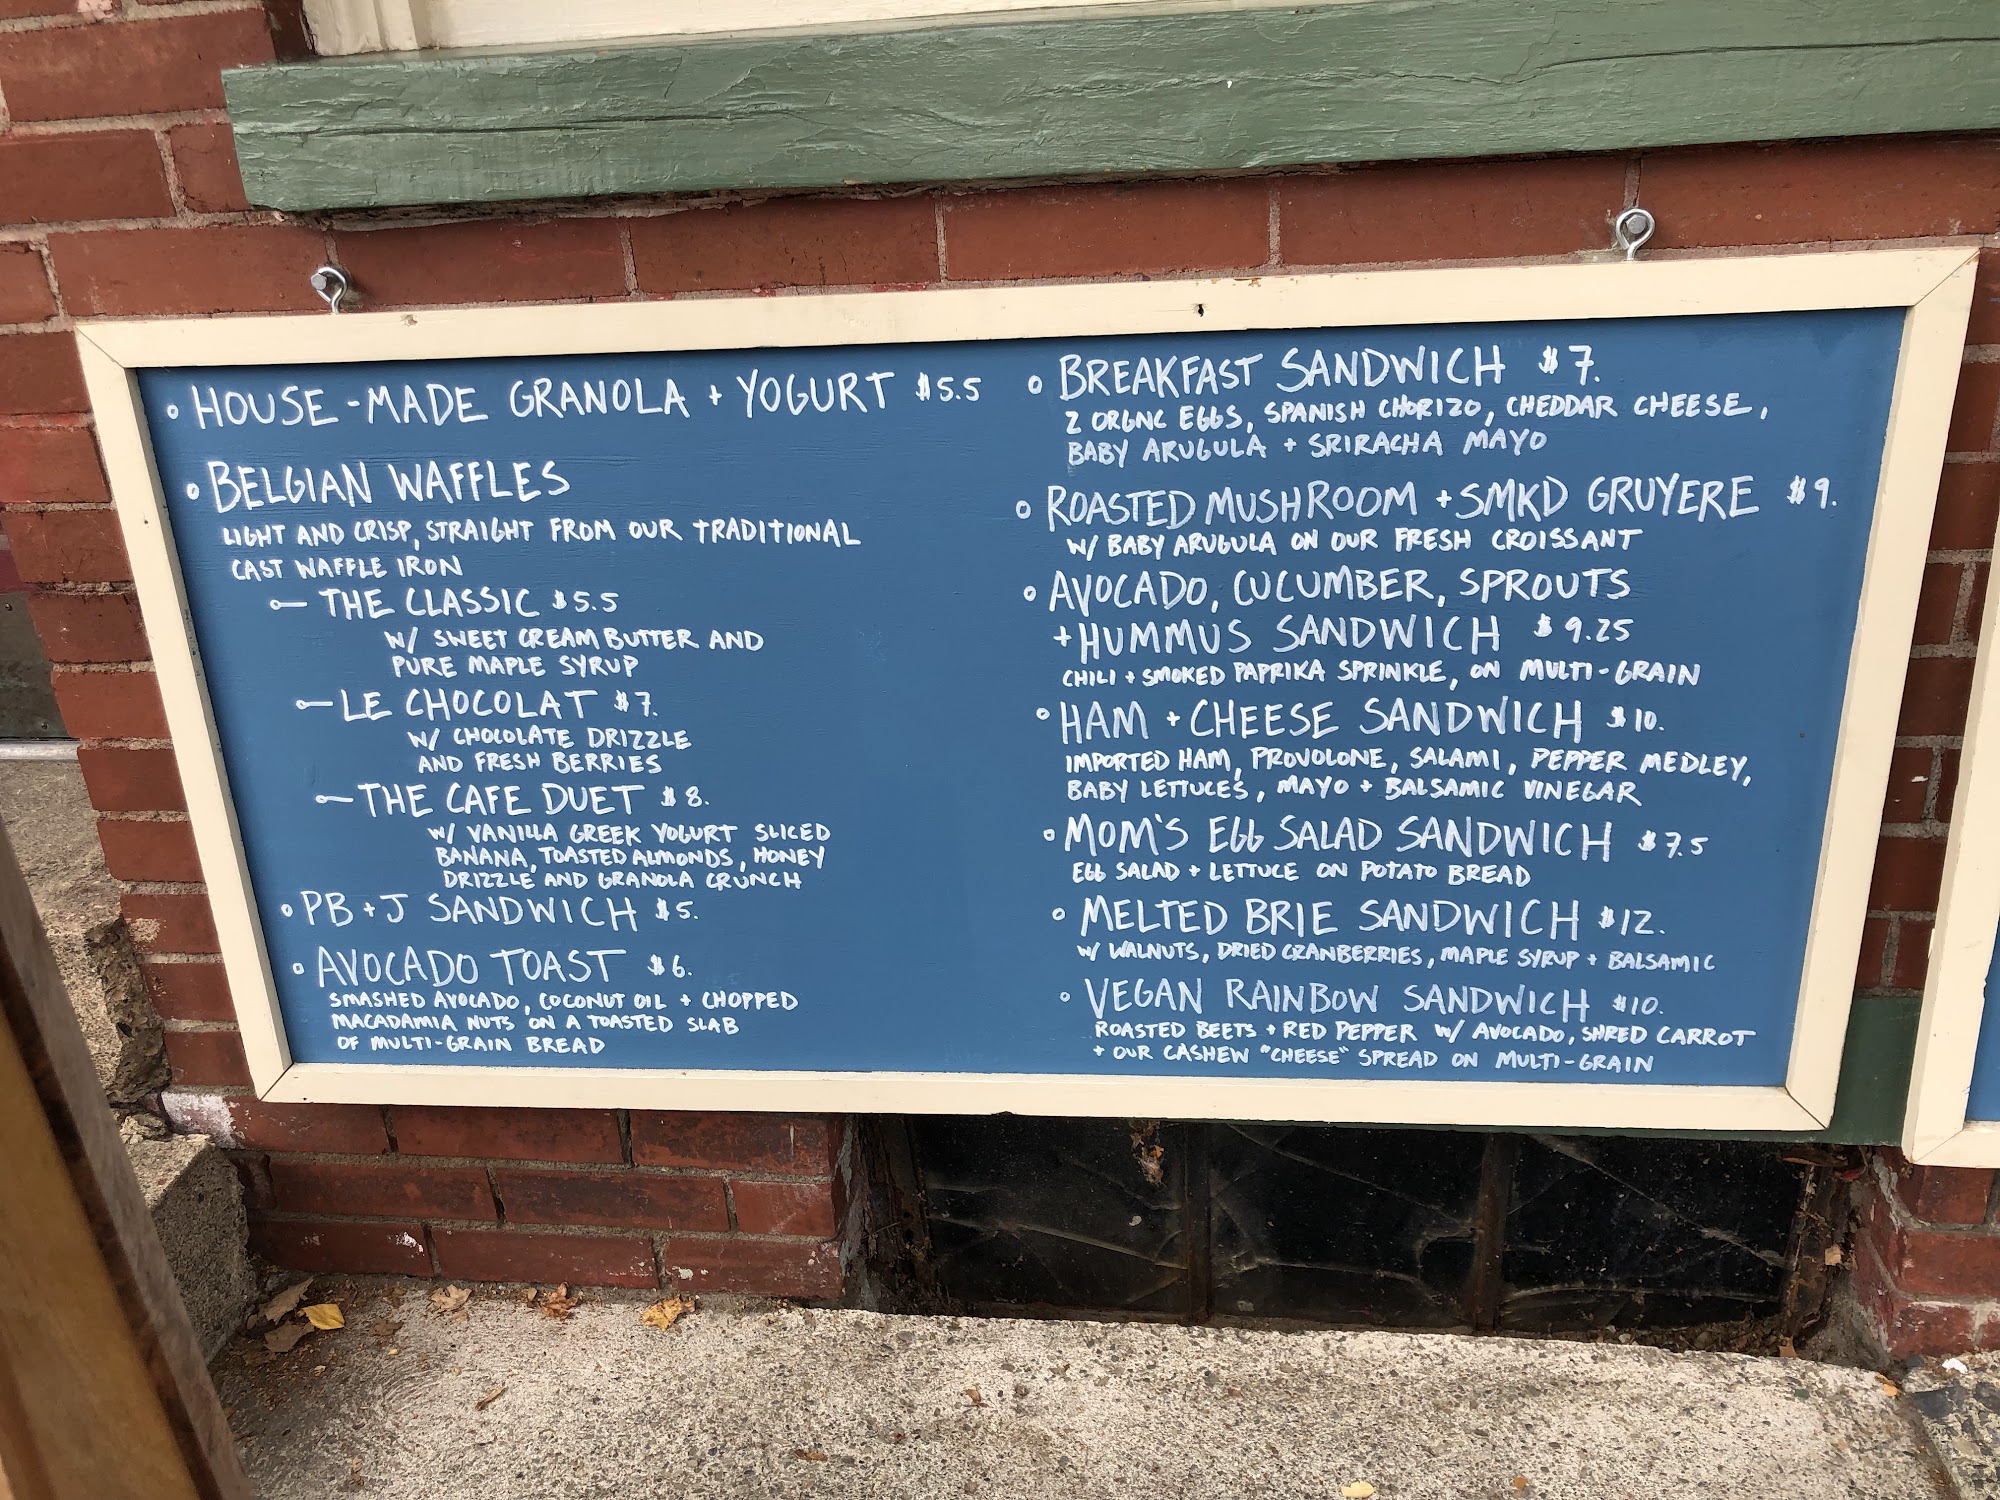 HOUSE-MADE GRANOLA + YOGURT $5.5
BELGIAN WAFFLES
LIGHT AND CRISP, STRAIGHT FROM OUR TRADITIONAL
CAST WAFFLE IRON
THE CLASSIC $5.5
W/ SWEET CREAM BUTTER AND
PURE MAPLE SYRUP
LE CHOCOLAT $7.
W/ CHOCOLATE DRIZZLE
AND FRESH BERRIES
THE CAFE DUET $8.
W/ VANILLA GREEK YOGURT SLICED
BANANA, TOASTED ALMONDS, HONEY
DRIZZLE AND GRANOLA CRUNCH
PB + J SANDWICH $5.
AVOCADO TOAST $6.
SMASHED AVOCADO, COCONUT OIL + CHOPPED
MACADAMIA NUTS ON A TOASTED SLAB
OF MULTI-GRAIN BREAD
BREAKFAST SANDWICH $7.
2 ORGNC EGGS, SPANISH CHORIZO, CHEDDAR CHEESE,
BABY ARUGULA + SRIRACHA MAYO
ROASTED MUSHROOM + SMKD GRUYERE $9.
W/ BABY ARUGULA ON OUR FRESH CROISSANT
AVOCADO, CUCUMBER, SPROUTS
+ HUMMUS SANDWICH $9.25
CHILI + SMOKED PAPRIKA SPRINKLE, ON MULTI-GRAIN
HAM + CHEESE SANDWICH $10.
IMPORTED HAM, PROVOLONE, SALAMI, PEPPER MEDLEY,
BABY LETTUCES, MAYO + BALSAMIC VINEGAR
MOM'S EGG SALAD SANDWICH $7.5
EGG SALAD + LETTUCE ON POTATO BREAD
MELTED BRIE SANDWICH $12.
W/ WALNUTS, DRIED CRANBERRIES, MAPLE SYRUP + BALSAMIC
VEGAN RAINBOW SANDWICH $10.
ROASTED BEETS + RED PEPPER W/ AVOCADO, SHRED CARROT
+ OUR CASHEW "CHEESE" SPREAD ON MULTI-GRAIN